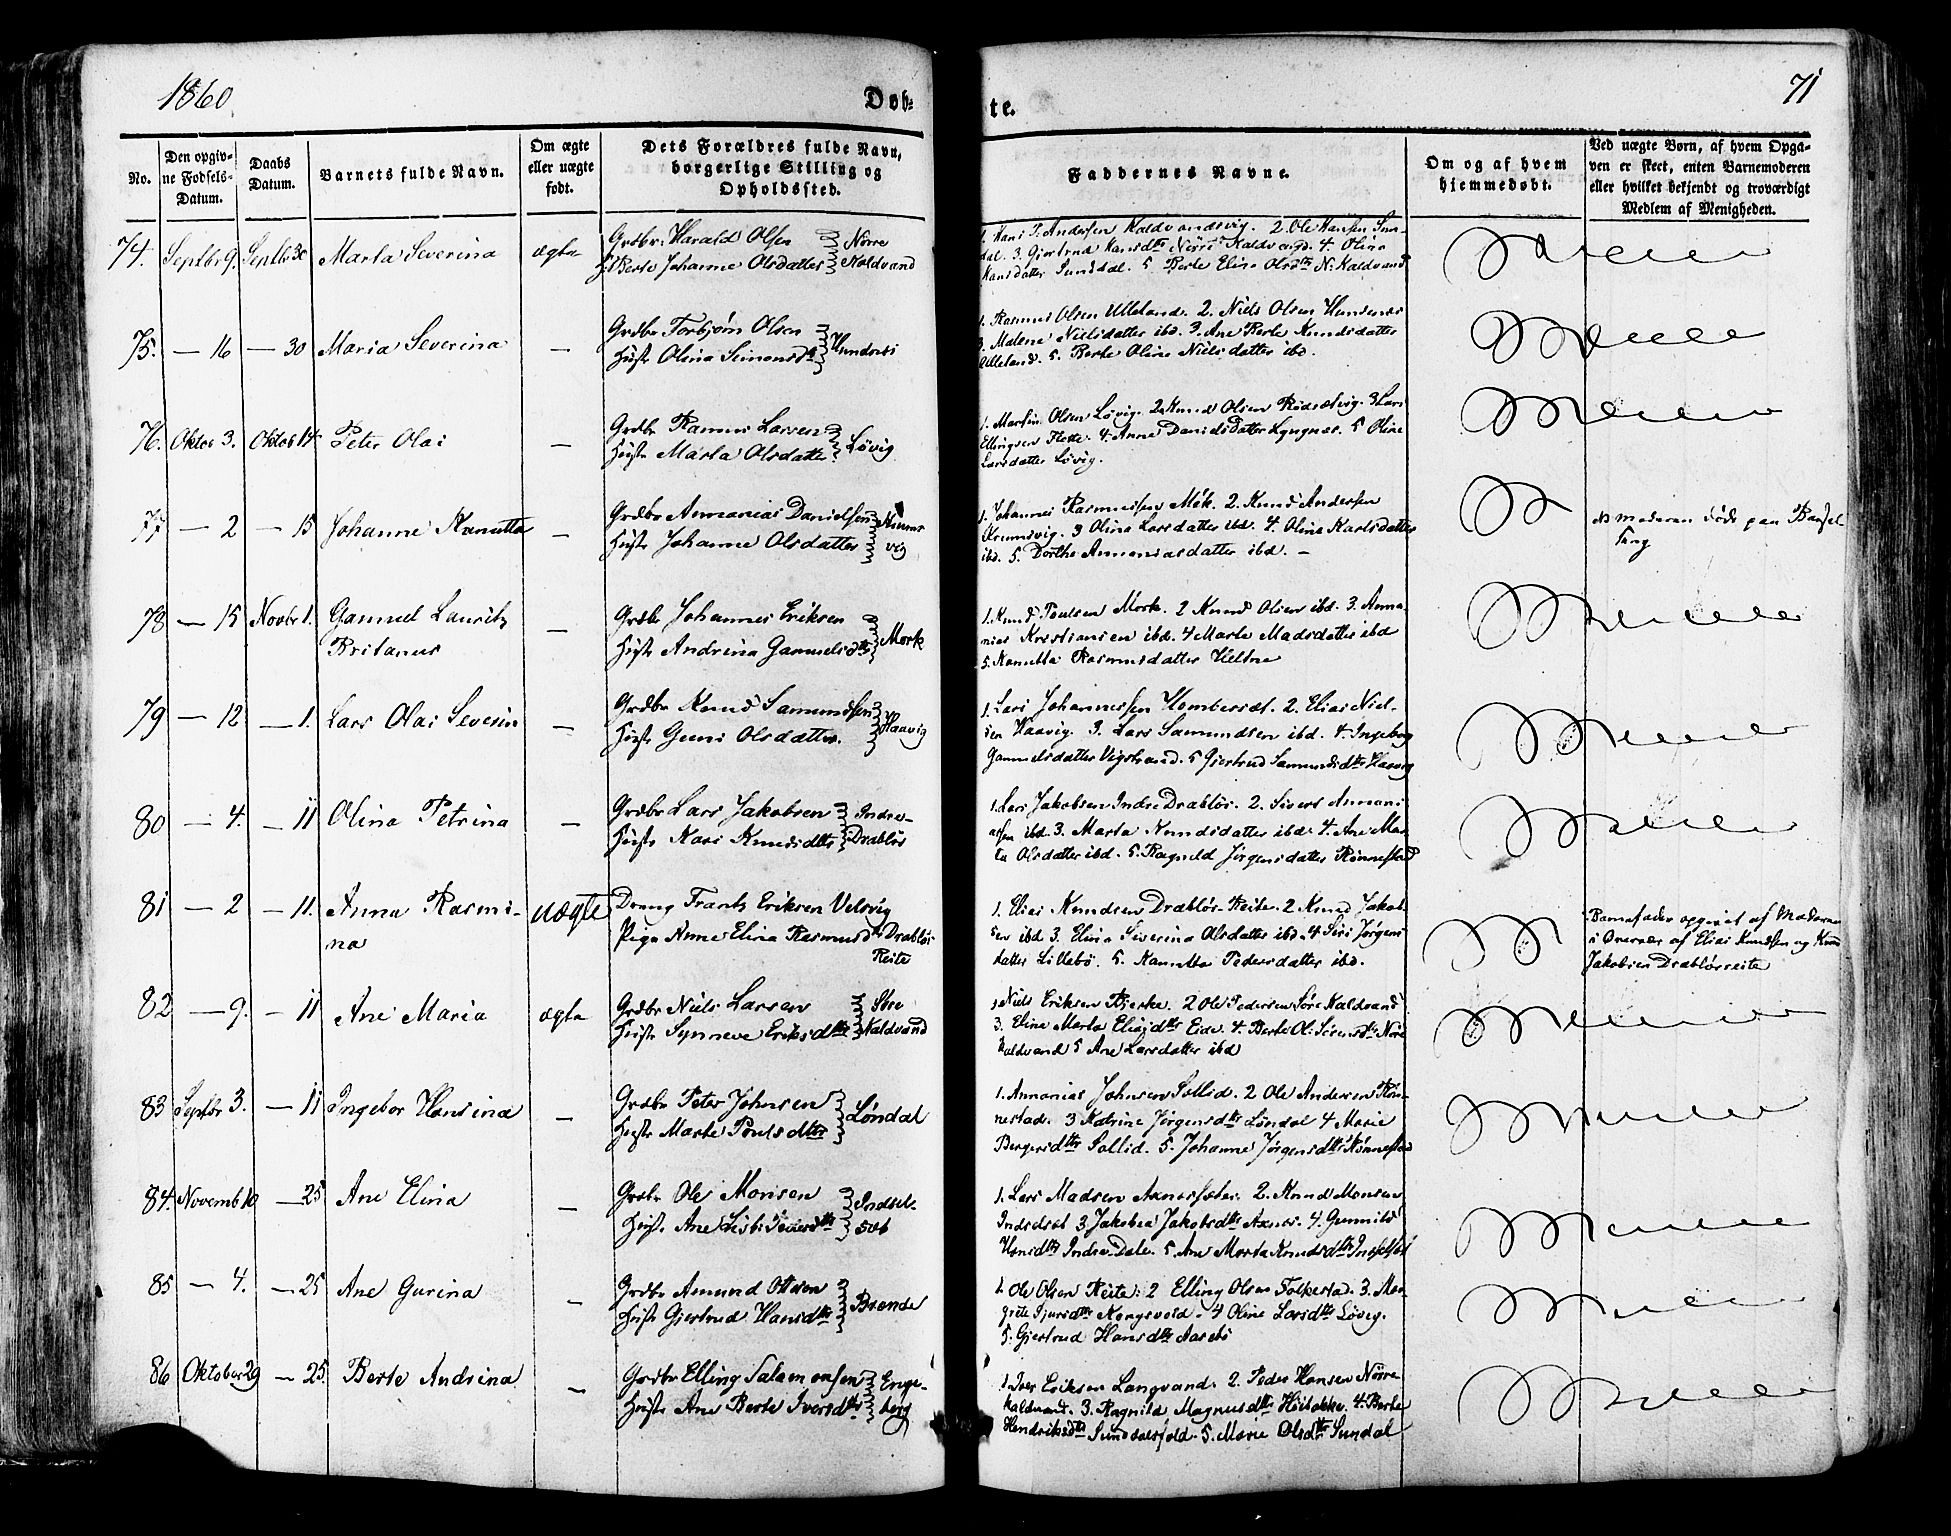 1860
Døb-
te.
71
No.
Den opgiv-
ne Fødsels-
Datum.
Daabs
Datum.
Barnets fulde Navn.
Om ægte
eller uægte
født.
Dets Forældres fulde Navn,
borgerlige Stilling og
Opholdssted.
Faddernes Navne.
Om og af hvem
hjemmedøbt.
Ved uægte Børn, af hvem Opga-
ven er skeet, enten Barnemoderen
eller hvilket bekjendt og troværdigt
Medlem af Menigheden.
74. Septbr 9. Septbr 30 Marta Severina ægte
Grdbr. Harald Olsen Nørre
Berte Johanne Olsdatter Kaldvand
1. Hans P. Andersen Kaldvandsvig. 2. Ole Hansen Sun-
dal. 3. Gjertrud Hansdtr Nörre Kaldvand. 4. Olina
Hansdatter Sunddal. 5 Berte Elina Olsdtr N. Kaldvand
75. — 16 — 30 Maria Severina —
Grdbr Torbjørn Olsen
Hust. Olina Simonsdtr Hundsnes
1. Rasmus Olsen Ulleland. 2. Niels Olsen Hundsnes
3. Malene Nielsdatter ibd. 3. Ane Berte Knudsdatter
Ulleland. 5. Berte Oline Nielsdatter ibd.
76. Oktob 3. Oktob 14 Peter Olai —
Grdbr Rasmus Larsen
Hust Marta Olsdatter. Løvig
1. Martin Olsen Løvig. 2 Knud Olsen Rødsætvig. 3 Lars
Ellingsen Flote. 4. Anne Danielsdatter Lyngnes. 5 Oline
Larsdatter Løvig.
77 — 2 — 15 Johanne Kanutta —
Grdbr Annanias Danielsen
Hust Johanne Olsdatter
vig
1. Johannes Rasmussen Mök. 2. Knud Andersen
Krumsvig. 3 Olina Larsdatter ibd. 4. Olina Karlsdatter
ibd. 5. Dorthe Annaniasdatter ibd. —
NB moderen døde paa Barsel
seng
78 — 15 Novbr 1. Gammel Laurits
Britanus —
Grdbr Johannes Eriksen
Hust Andrina Gammelsdtr Mork
1. Knud Poulsen Mork. 2 Knud Olsen ibd. 3. Anna-
nias Kristiansen ibd. 4 Marte Madsdatter ibd
5. Kanutta Rasmusdatter Heltne
79 — 12 — 1. Lars Olai Severin —
Grdbr Knud Samundsen
Hust Guni Olsdatter. Haavig
1. Lars Johannessen Homberset. 2. Elias Niel-
sen Haavig. 3. Lars Samundsen ibd. 4. Ingeborg
Gammelsdatter Vigstrand. 5 Gjertrud Samundsdtr Haavig
80 — 4. — 11 Olina Petrina —
Grdbr Lars Jakobsen Indre-
Hust Kari Knudsdtr Drabløs
1. Lars Jakobsen Indre Drabløs. 2. Sivert Annani-
assen ibd. 3. Marta Knudsdatter ibd. 4. Ane Mar-
ta Olsdatter ibd. 5. Ragnild Jørgensdatter Rönnestad
81 — 2 — 11. Anna Rasmi-
na uægte
Dreng Frants Eriksen Velsvig
Pige Anne Elina Rasmusdtr Drabløs
Reite
1. Elias Knudsen Drabløs Reite. 2 Knud Jakob-
sen ibd 3. Elina Siverina Olsdatter ibd. 4 Siri Jørgens
datter Lillebö. 5. Kanutta Pedersdatter ibd.
Barnefader opgivet af Moderen
i Overvær af Elias Knudsen og Knud
Jakobsen Drabløsreite
82 — 9. — 11 Ane Maria ægte
Grdbr Niels Larsen Søre
Hust Synneve Eriksdtr Kaldvand
1 Niels Eriksen Bjerke. 2 Ole Pedersen Søre Kaldvand
3. Eline Marta Eliasdtr Eide. 4. Berte Ol. Sivensdtr Nøre
Kaldvand 5 Ane Larsdatter ibd
83 Septbr 3. — 11 Ingebor Hansina —
Grdbr Peter Johnsen
Hust Marte Poulsdtter Løndal
1. Annanias Johnsen Sollid. 2 Ole Andersen Røn-
nestad. 3 Katrine Jørgensdtr Løndal 4 Marie
Bergersdttr Sollid. 5. Johanne Jørgensdtr Rønnestad
84. Novemb 10 — 25 Ane Elina —
Grdbr Ole Monsen Indsel-
Hust. Ane Lisbet Siversdtr sæt
1. Lars Madsen Axnessæter. 2. Knud Monsen
Indselset 3 Jakobea Jakobsdtr Axnes. 4. Gunnild
Hansdtr Indre-Dale. 5. Ane Marta Knudsdtr Indselsæt
85 — 4. — 25 Ane Gurina —
Grdbr Amund Ottesen
Hust Gjertrud Hansdtr Brende
1. Ole Olsen Reite: 2 Elling Olsen Folkestad. 3. Mar-
grete Sjursdtr Kongsvold. 4 Oline Larsdtr Løvig.
5. Gjertrud Hansdtr Aasebø
86 Oktober 29 — 25 Berte Andrina —
Grdbr Elling Salamonsen Enge-
Hust Ane Berte Iversdtr berg
1. Iver Eriksen Langvand. 2. Peder Hansen Nørre
Kaldvand. 3. Ragnild Magnusdtr Hiebakke. 4. Berte
Hendriksdtr Sunddalsfald. 5. Marie Olsdtr Sundal